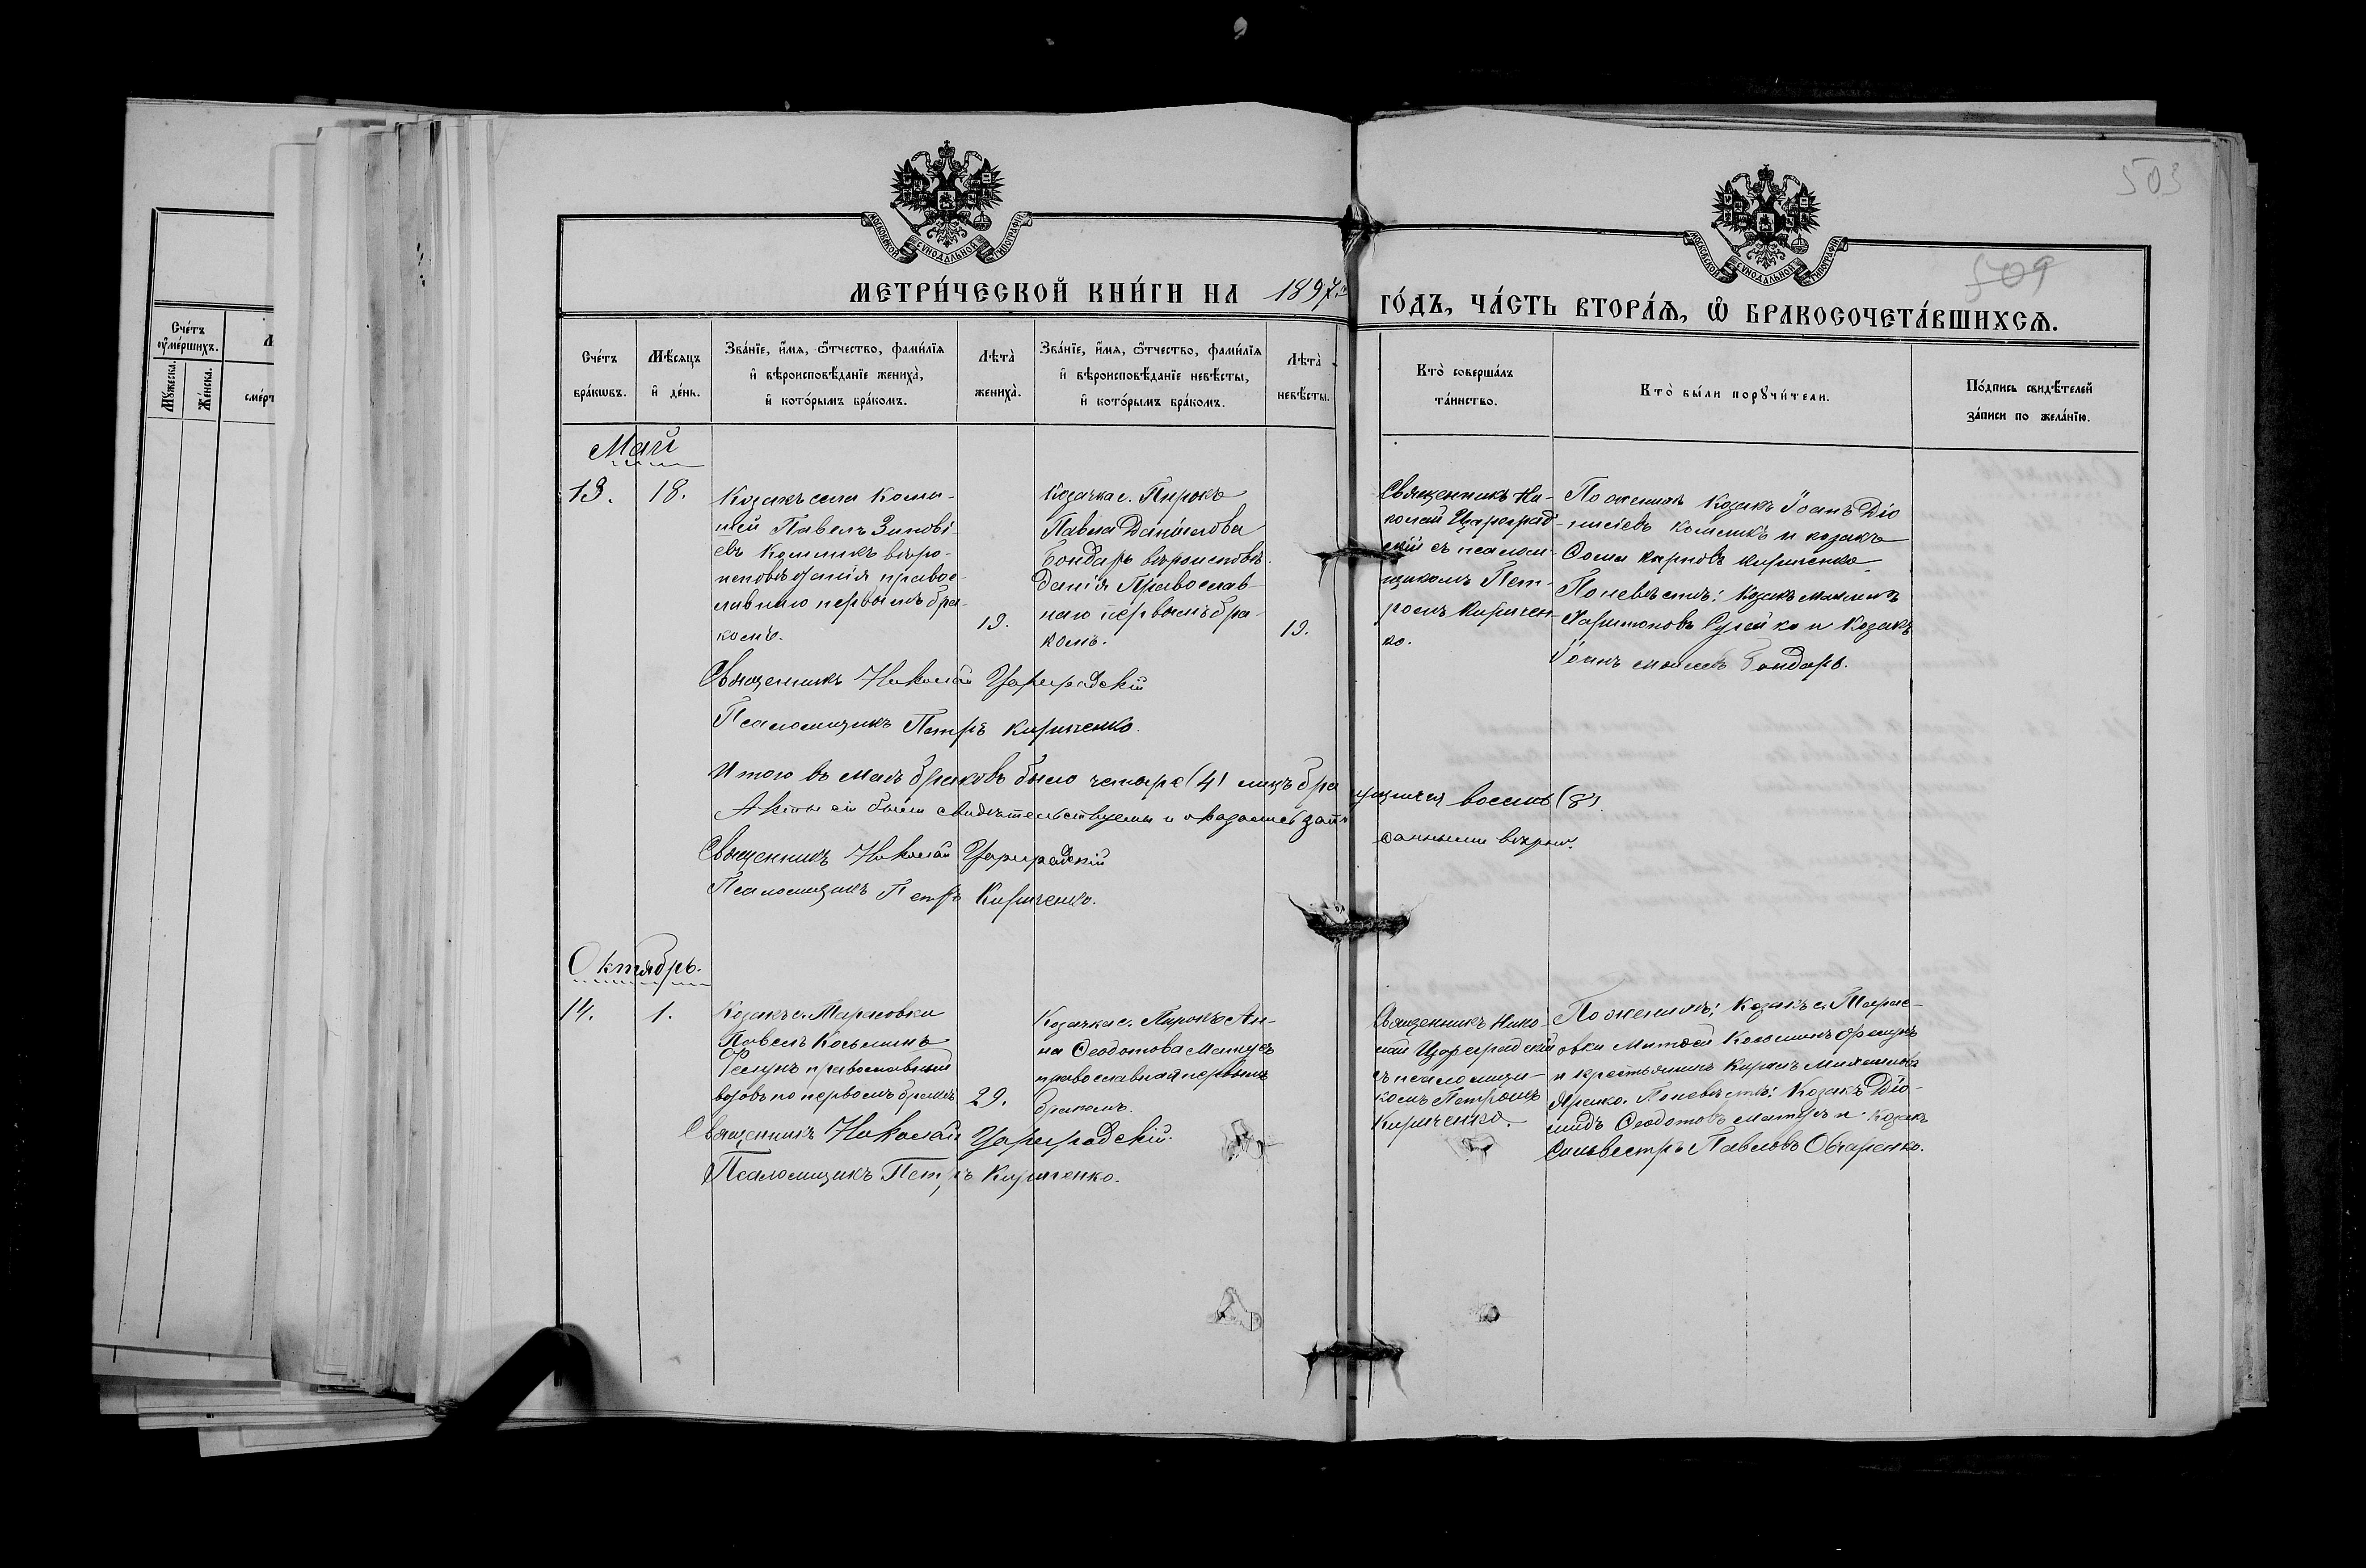 503
509
МОСКОВСКОЙ СУНОДАЛЬНОЙ ТИПОГРАФІИ
МОСКОВСКОЙ СУНОДАЛЬНОЙ ТИПОГРАФІИ
МЕТРИ́ЧЕСКОЙ КНИ́ГИ НА 1897
ГО́ДЪ, ЧА́СТЬ ВТОРА́Ѧ, Ѡ҆ БРАКОСОЧЕТА́ВШИХСѦ.
Сче́тъ
оу҆ме́ршихъ.
Му́жеска.
Же́нска.
Сче́тъ
бра́кѡвъ.
Мѣ́сяцъ
и҆ де́нь.
Зва́нїе, и҆́мя, ѻ҆́тчество, фами́лїя
и҆ вѣроисповѣ́данїе жениха̀,
и҆ кото́рымъ бра́комъ.
Лѣта̀
жениха̀.
Зва́нїе, и҆́мя, ѻ҆́тчество, фами́лїя
и҆ вѣроисповѣ́данїе невѣ́сты,
и҆ кото́рымъ бра́комъ.
Лѣта̀
невѣ́сты.
Кто̀ соверша́лъ
та́инство.
Кто̀ бы́ли поручи́тели.
По́дпись свидѣ́телей
за́писи по жела́нїю.
Май
13.
18.
Козакъ села Кома-
Павелъ Зинові-
евъ вѣро-
исповѣданія правос-
лавнаго первымъ бра-
комъ.
19.
Козачка с. Пирокъ
Павла Даніилова
Бондарь вѣроисповѣ-
данія Православ-
наго первымъ бра-
комъ.
19.
Священникъ Ни-
колай Цареград-
скій съ псалом-
щикомъ Пет-
ромъ Киричен-
ко.
По женихѣ Козакъ Іоанъ Діо
нисіевъ и козакъ
Ѳома Карповъ Кириченко
По невѣстѣ: Козакъ
Харитоновъ и Козакъ
Іоанъ Бондарь.
Священникъ Николай Цареградскій
Псаломщикъ Петръ Кириченко.
Итого въ Маѣ браковъ было четыре (4) лицъ бра чущихся восемь (8).
Акты сіи были свидѣтельствуемы и оказались запи санными вѣрно.
Священникъ Николай Цареградскій
Псаломщикъ Петръ Кириченко.
Октябрь.
14.
1.
Козакъ с. Тарасовки
Павелъ Косьминъ
православный
вдовъ по первомъ бракѣ
29.
Козачка с. Пирокъ Ан-
на Ѳеодотова
православная первымъ
бракомъ.
Священникъ Нико-
лай Цареградскій
съ псаломщи-
комъ Петромъ
Кириченко.
По женихѣ: Козакъ с. Тарас-
овки Матѳей Косьминъ
и крестьянинъ
По невѣстѣ: Козакъ Діо-
мидъ Ѳеодотовъ и Козакъ
Сильвестръ Павловъ Овчаренко.
Священникъ Николай Цареградскій.
Псаломщикъ Петръ Кириченко.